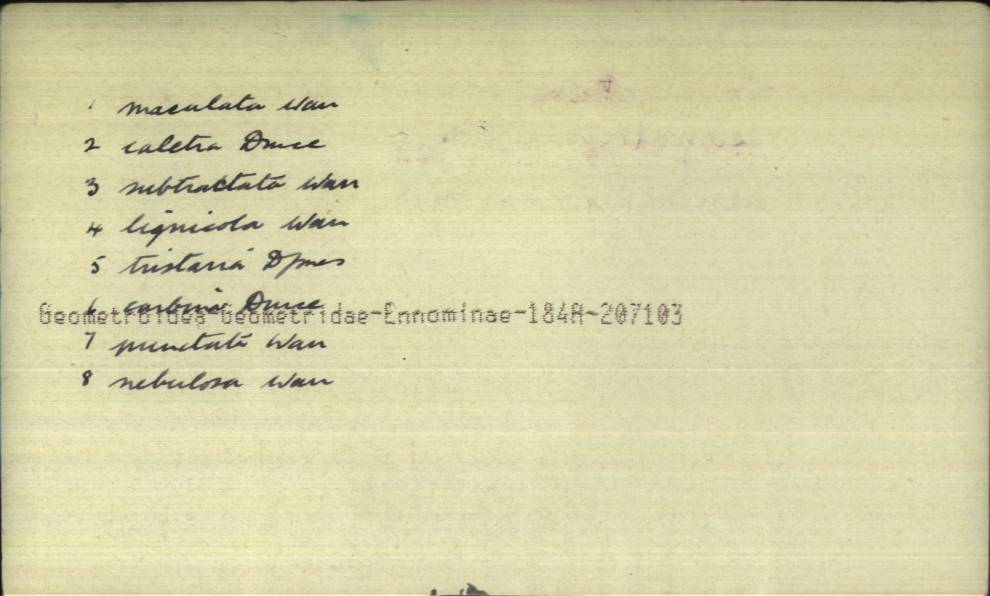 1 maculata Warr
2 caletra Druce
3 subtractata Warr
4 lignicola Warr
5 tristaria Dognes
6 carbina Druce
Geometroidea-Geometridae-Ennominae-184A-207103
7 punctata Warr
8 nebulosa Warr